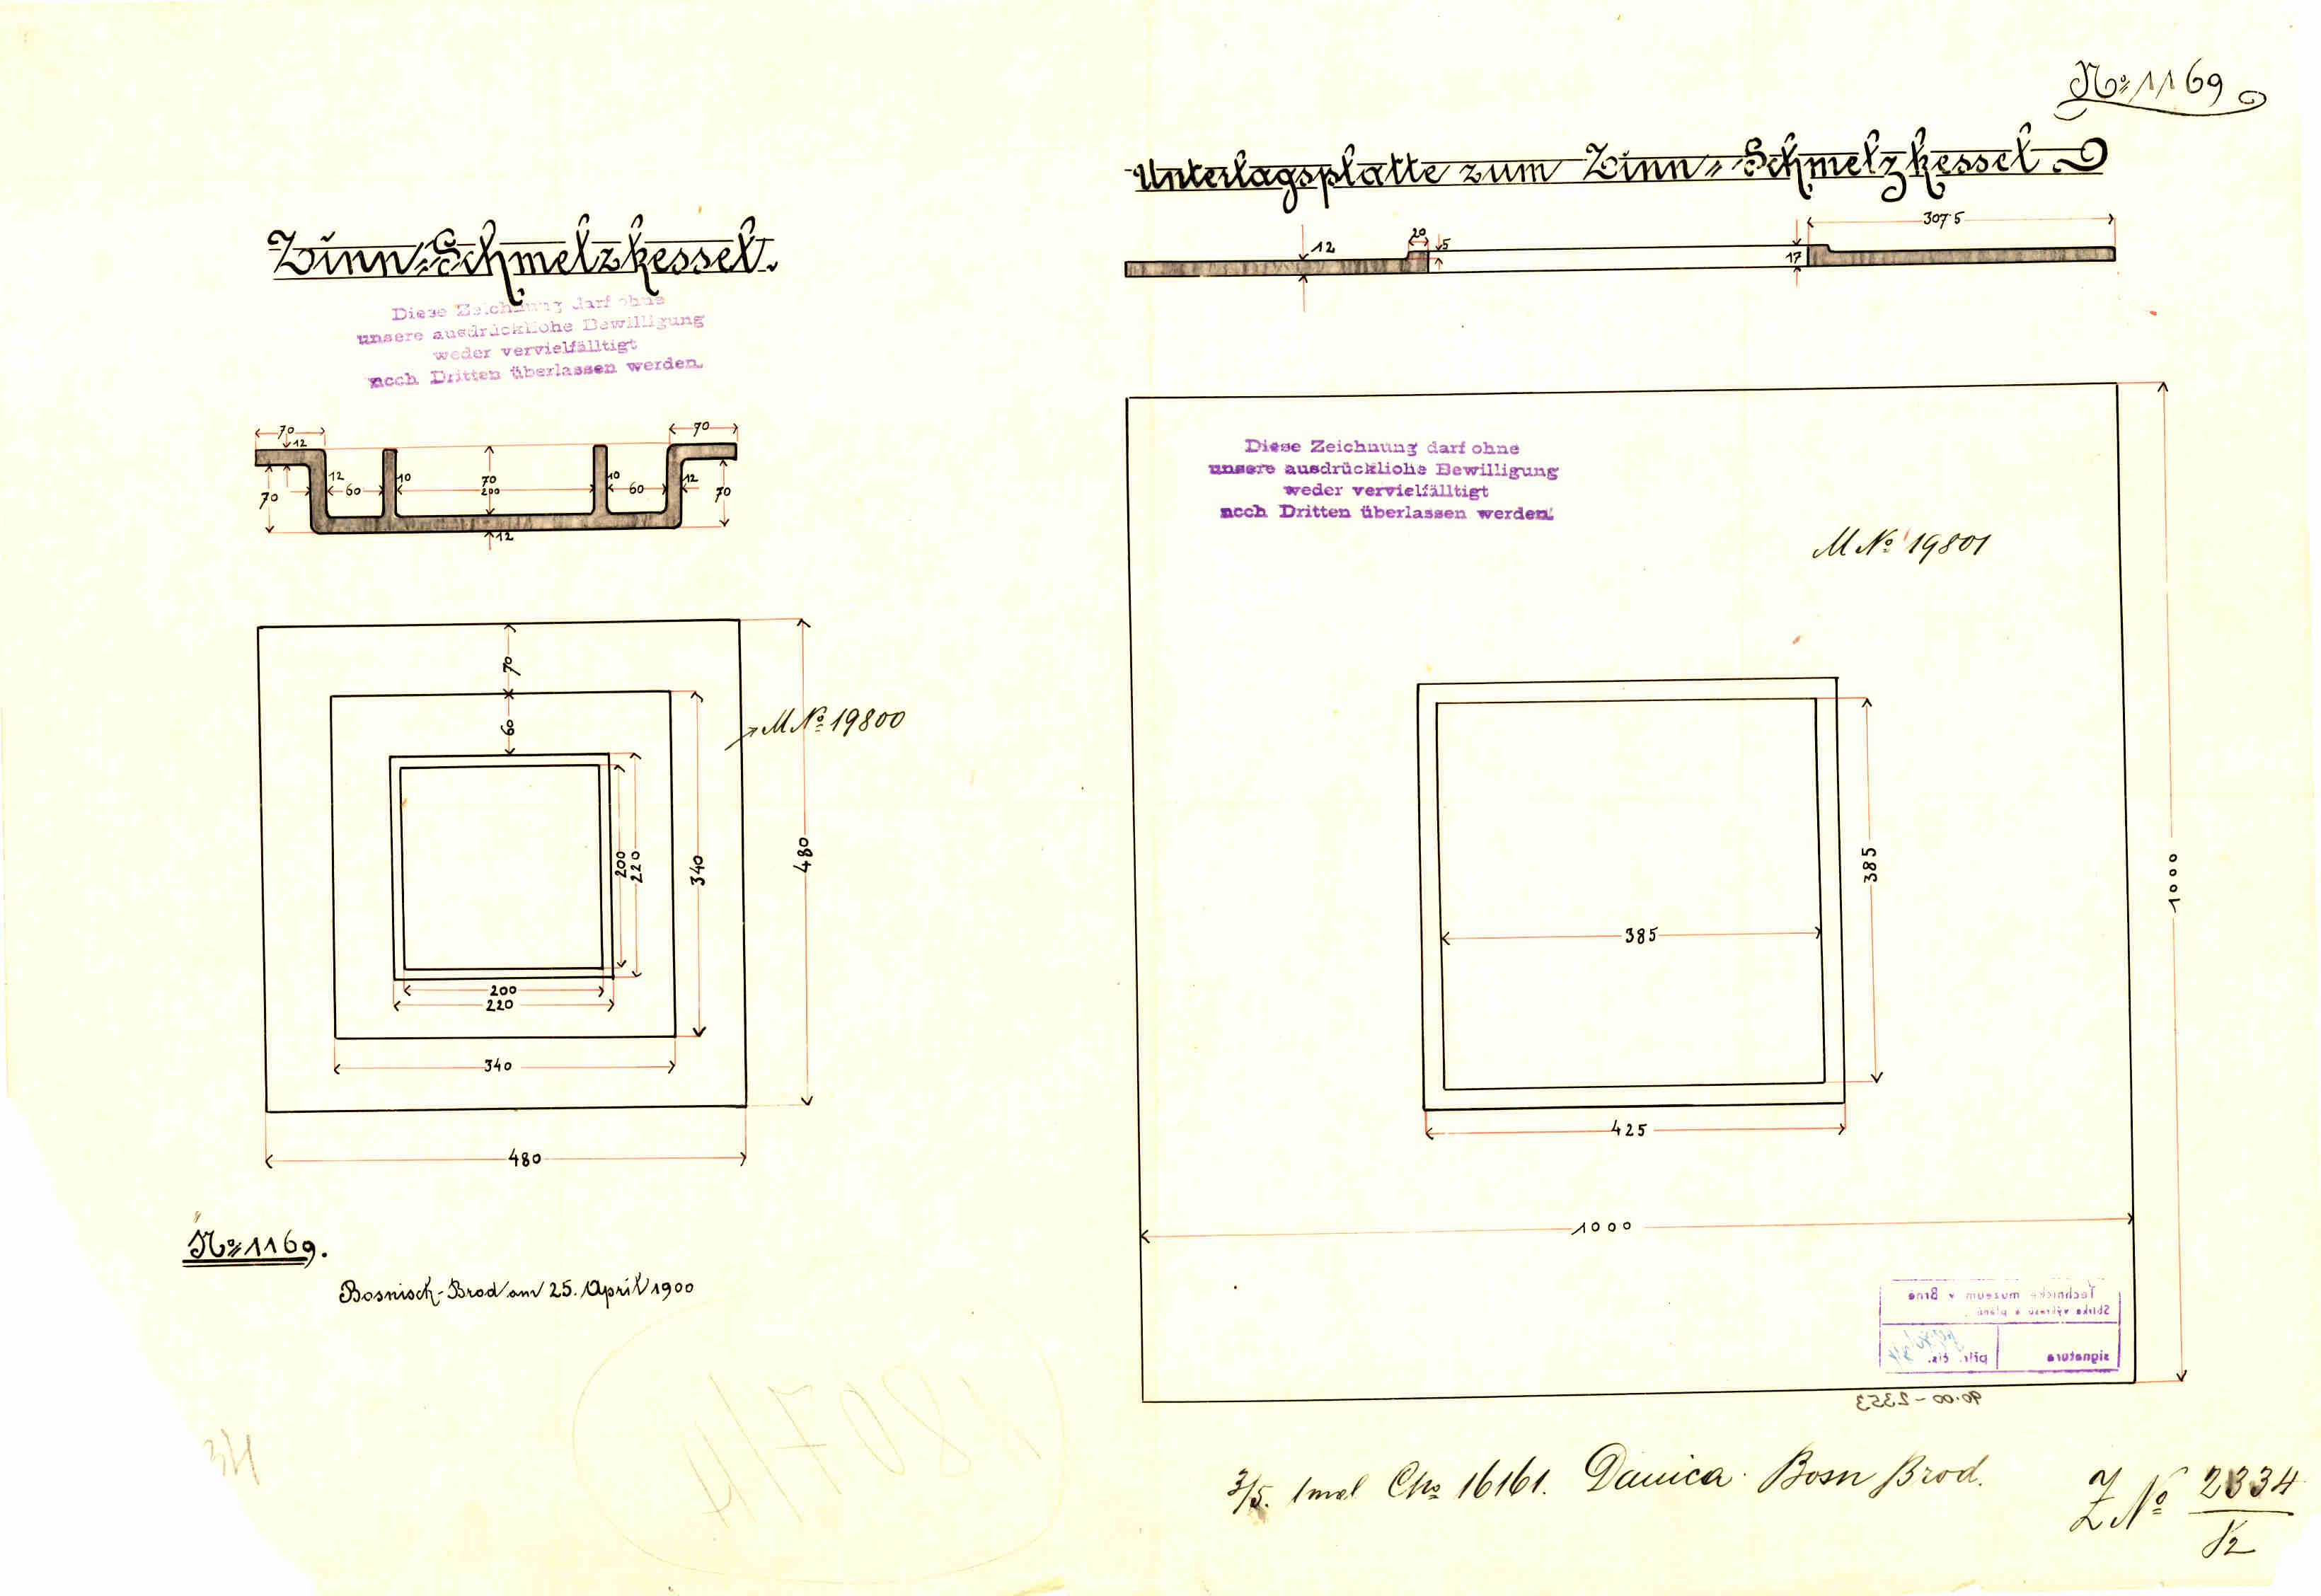 Nº 1169
Zinn-Schmelzkessel.
Diese Zeichnung darf ohne
unsere ausdrückliche Bewilligung
weder vervielfälltigt
noch Dritten überlassen werden.
70
70
12
12
10
70
200
10
12
60
60
70
70
12
70
60
M Nº 19800
200
220
340
480
200
220
340
480
Nº 1169.
Bosnisch-Brod am 25. April 1900
Unterlagsplatte zum Zinn-Schmelzkessel
307·5
12
20
5
17
Diese Zeichnung darf ohne
unsere ausdrückliche Bewilligung
weder vervielfälltigt
noch Dritten überlassen werden.
M Nº 19801
385
385
1000
425
1000
Technické muzeum v Brně
Sbírka výkresů a plánů
signatura
přír. čís.
90·00-2353
1807/4
3/5. 1mal Cko 16161. Danica Bosn Brod.
Z Nº 2334